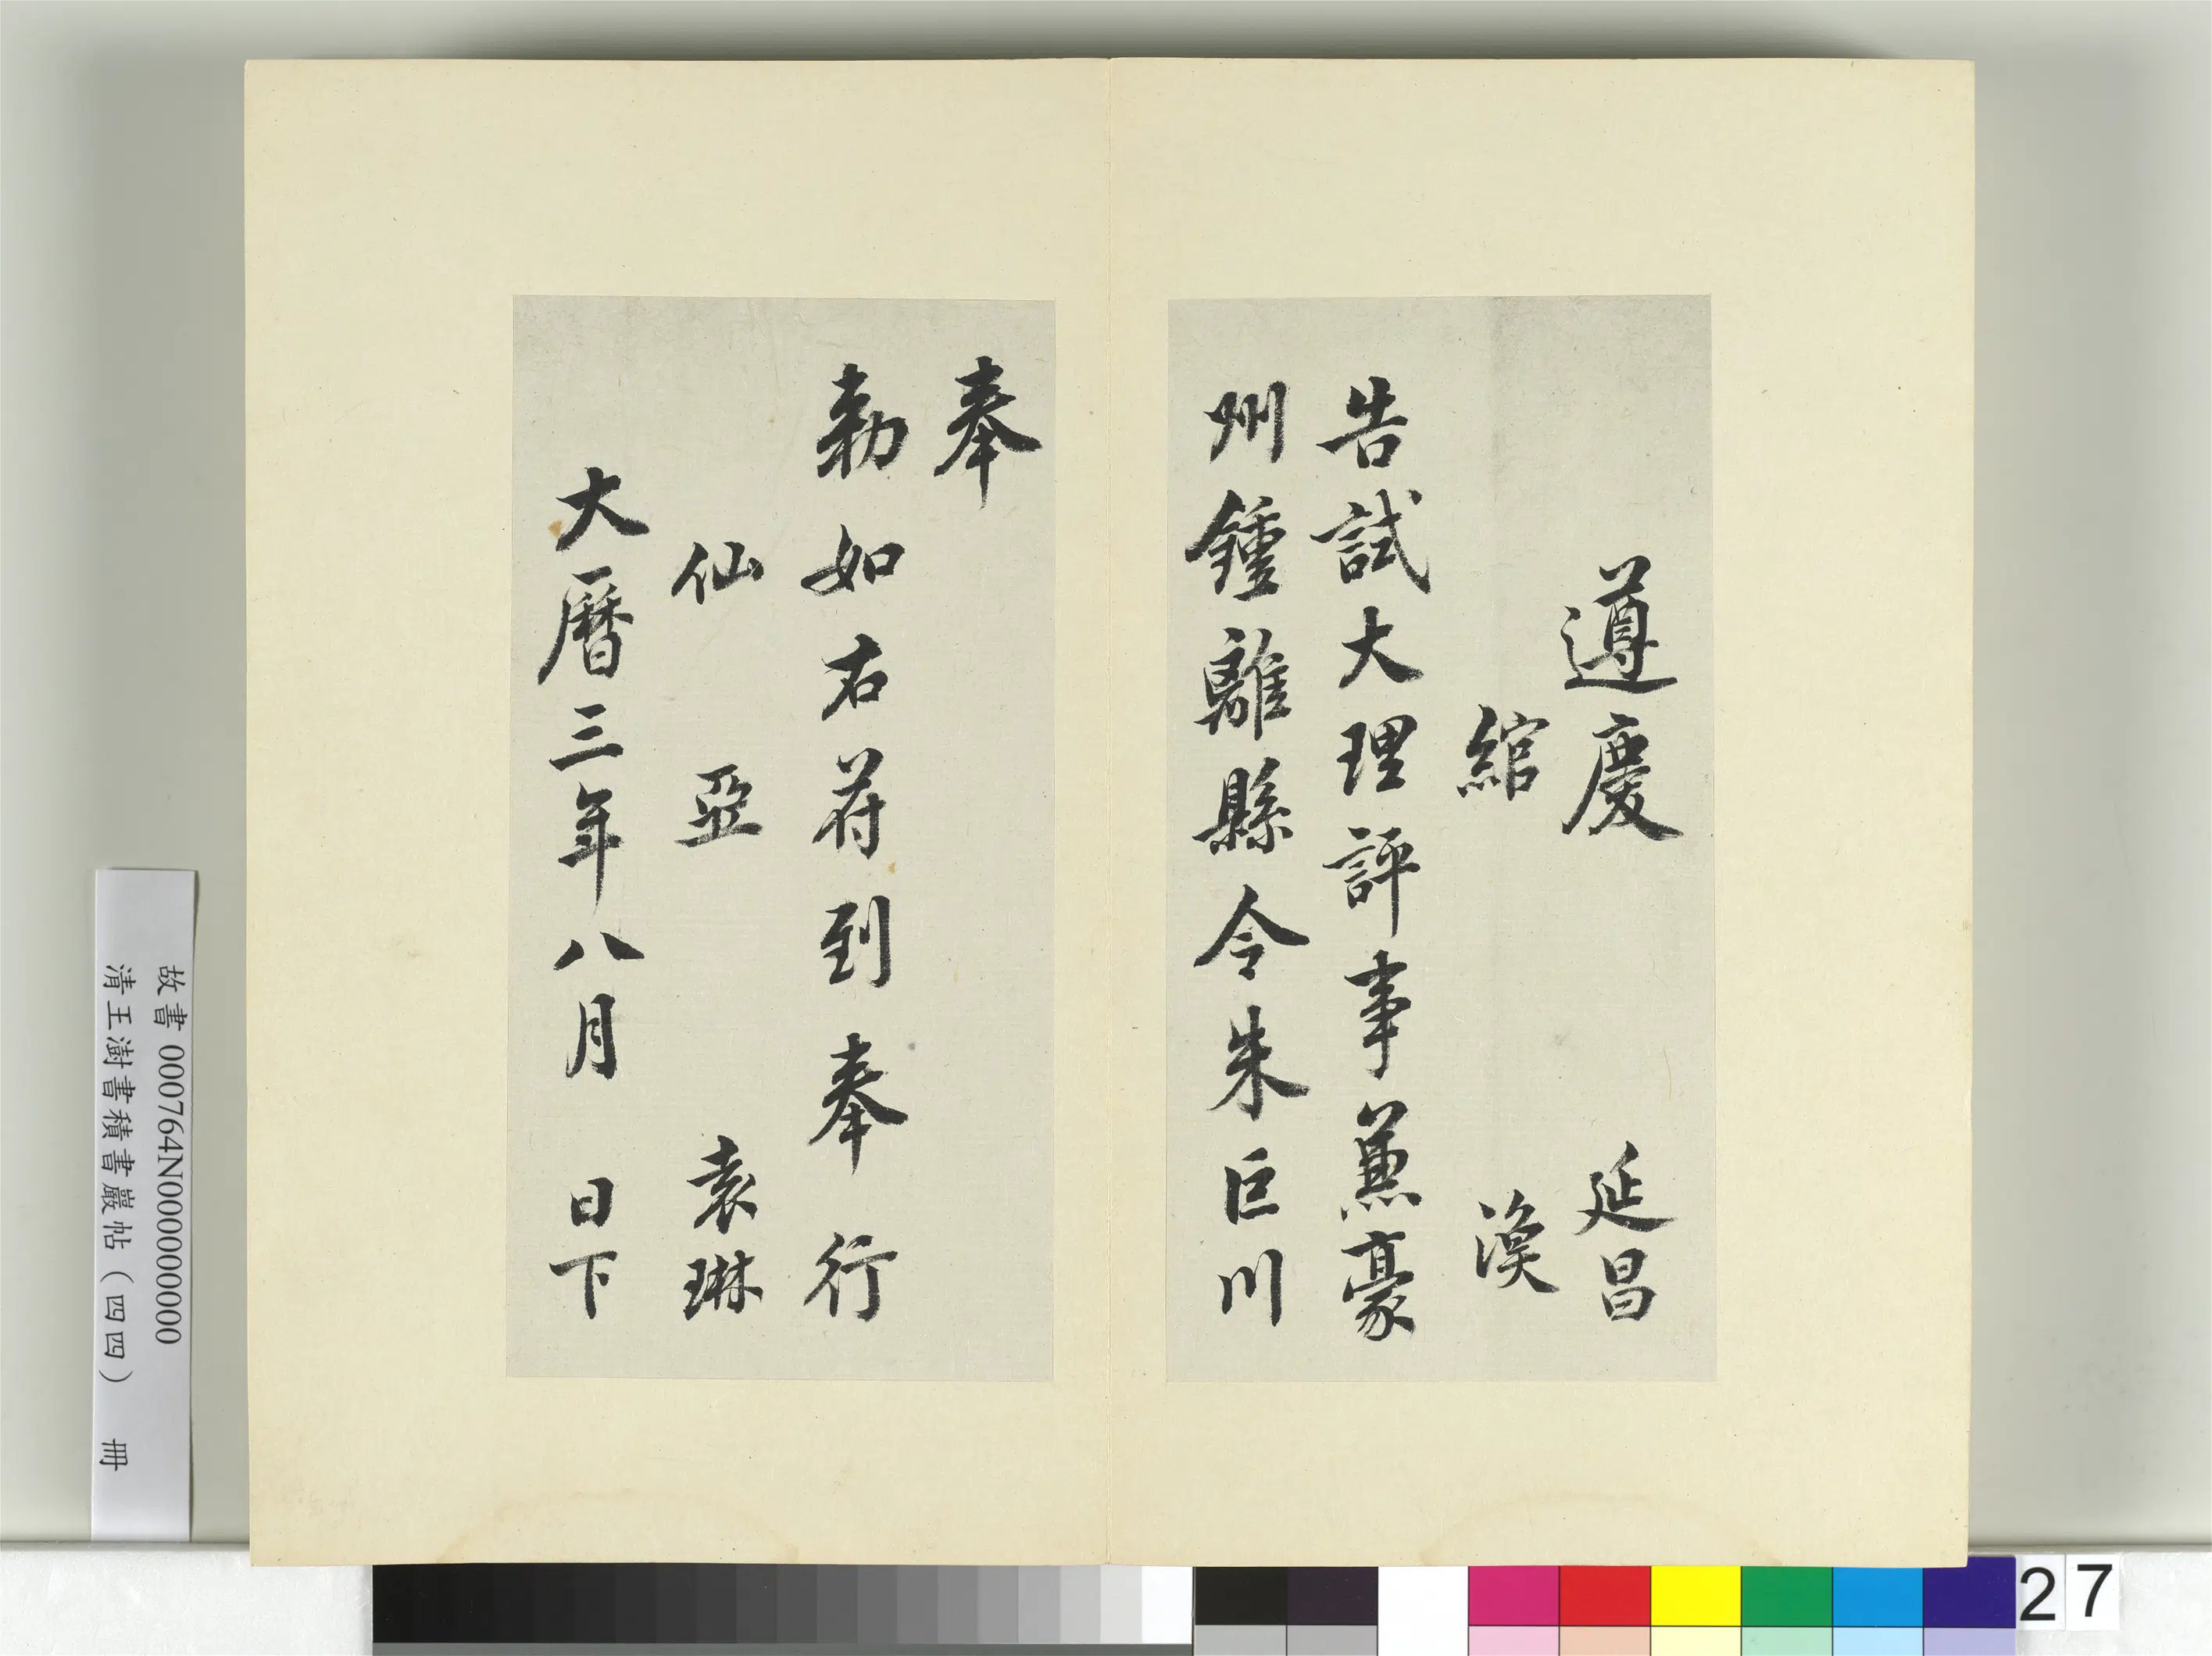 遵慶 延昌
綰 渙
告試大理評事兼豪
州鍾離縣令朱巨川
奉
勅如右符到奉行
仙 亞 袁琳
大曆三年八月 日下
故書 000764N000000000
清王澍書積書巖帖(四四) 冊
27